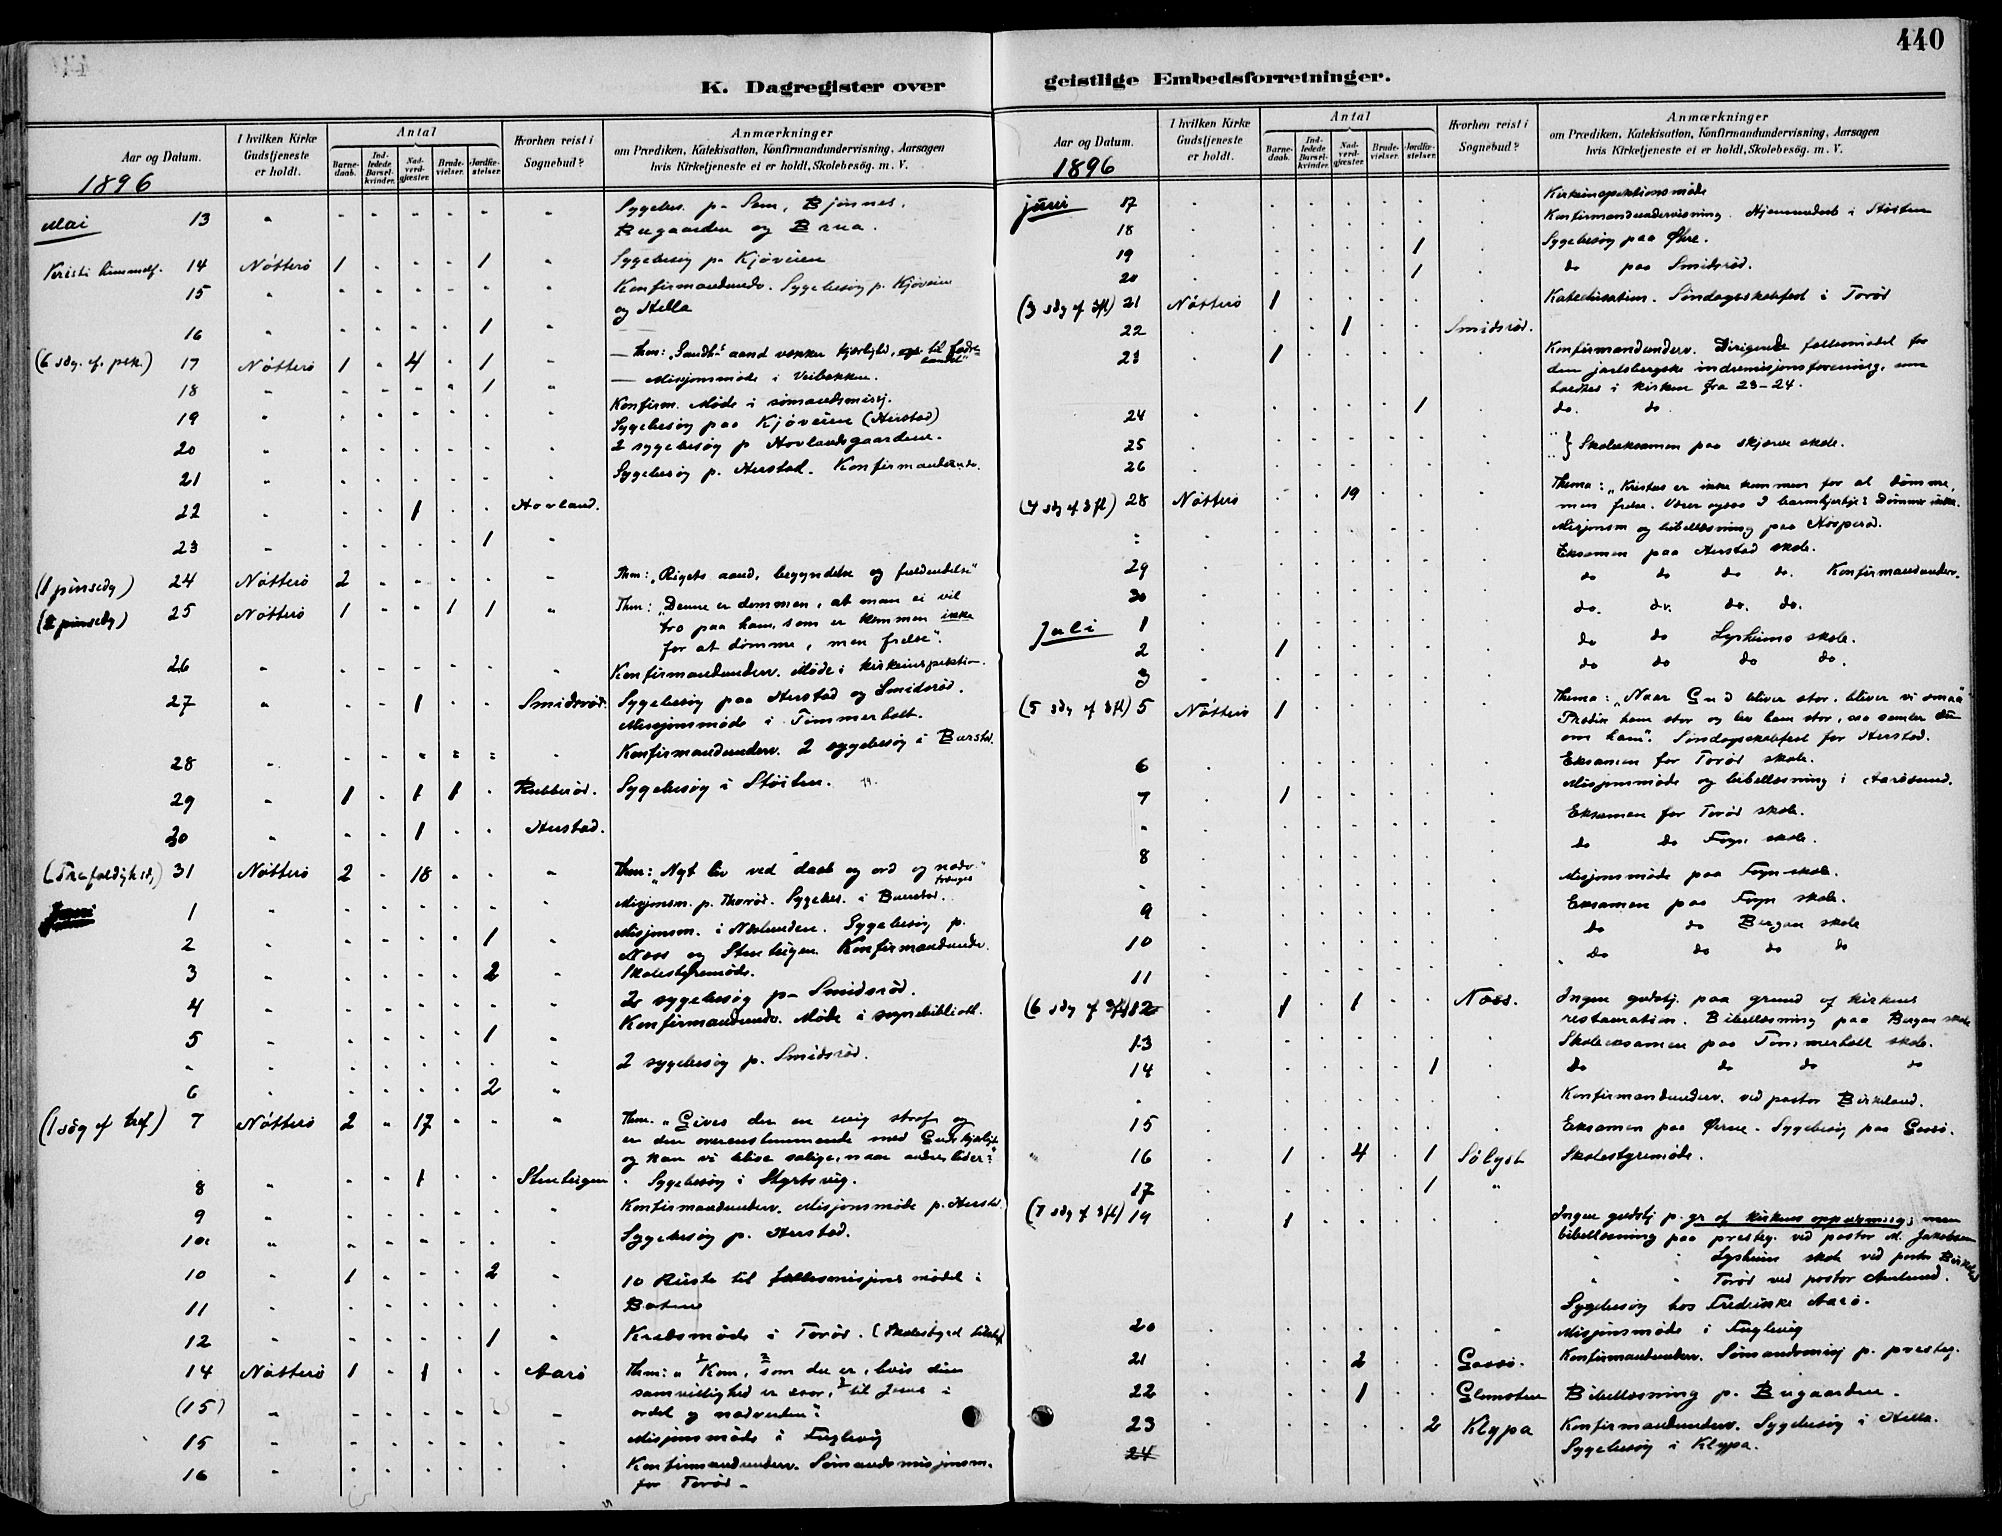 440
K. Dagregister over
geistlige Embedsforretninger.
Aar og Datum.
I hvilken Kirke Gudstjeneste er holdt.
Antal
Barne-daab.
Ind-ledede Barsel-kvinder.
Nad-verd-gjæster.
Brude-vielser.
Jordfæ-stelser.
Hvorhen reist i Sognebud?
Anmærkninger
om Prædiken, Katekisation, Konfirmandundervisning, Aarsagen
hvis Kirketjeneste ei er holdt, Skolebesøg. m. V.
1896
Mai 13 Sygebes. p. Sem, Bjønnes,
Bugaarden og Brua.
Kristi himmelf. 14 Nøtterö 1 1 Sygebesög p. Kjöveien
15 Konfirmandundv. Sygebesög p. Kjöveien
og Hella
16 1
(6 sdg. ef. psk.) 17 Nøtterö 1 4 1
18 1 Misjonsmøde i Veibakken.
19 Konfirm. Møde i sømandsmisj.
20 Sygebesøg paa Kjøveien (Herstad)
2 sygebesøg p Hovlandsgaardene.
21 Sygebesøg p. Herstad. Konfirmandundv.
22 1 Hovland.
23 1
(1 pinsedg) 24 Nøtterö 2 Thm: "Rigets aand, begyndelse og fuldendelse"
(2 pinsedg) 25 Nøtterö 1 1 1 Thm: "Denne er dommen, at man ei vil
tro paa ham, som er kommen ikke
for at dømme, men frelse".
26 Konfirmandunderv. Møde i kirkeinspektion.
27 1 Smidsrød. Sygebesög paa Herstad og Smidsrød.
Misjonsmøde i Tømmerholt.
28 Konfirmandunderv. 2 sygebesøg i Burstad.
29 1 1 1 Rubberød. Sygebesøg i Støiten.
30 1 Herstad.
(Trefoldighsdg) 31 Nøtterö 2 18 Thm: "Nyt liv ved daab og ord og nadv."
Juni 1 Misjonsm. p. Thorød. Sygebes. i Burstad.
2 1 Misjonsm. i Næslunden. Sygebesøg p.
Noes og Stenbigen. Konfirmandundv.
3 2 Skolestyremøde.
4 2 sygebesøg p. Smidsrød.
5 1 Konfirmandundv. Møde i sognebibliotl.
2 sygebesøg p. Smidsrød.
6 2
(1 sdg ef tref) 7 Nøtterö 2 17 Thm. "Gives der en evig straf og
er den overensstemmende med Guds kjærligh
og kan vi blive salige, naar andre lider?"
8 1 Stenbigen Sygebesøg i Styrtsvig.
9 Konfirmandunderv. Misjonsmøde p. Herstad.
10 Sygebesøg p. Herstad.
10 1 2 10 Reiste til fællesmisjons mødet i
11 Botne
12 1 Kredsmøde i Torød. (Skolestyret tilsted)
14 Nøtterö 1 1 Aarö Thm: "Kom, som du er, hvis din
samvittighed er svar, til Jesus i
(15) ordet og nadverden".
15 Misjonsmøde i Fuglevig
16 Konfirmandunderv. Sømandsmisjonsm.
for Torød.
Aar og Datum.
I hvilken Kirke Gudstjeneste er holdt.
Antal
Barne-daab.
Ind-ledede Barsel-kvinder.
Nad-verd-gjæster.
Brude-vielser.
Jordfæ-stelser.
Hvorhen reist i Sognebud?
Anmærkninger
om Prædiken, Katekisation, Konfirmandundervisning, Aarsagen
hvis Kirketjeneste ei er holdt, Skolebesøg. m. V.
1896
juni 17 Kirkeinspektionsmøde
18 Konfirmandundervisning. Hjemmedaab i Støiten
19 1 Sygebesøg paa Øhre.
20 1 do paa Smidsrød.
(3 sdg ef 3fl) 21 Nøtterö 1 Katechisation. Søndagsskolefest i Torød
22 1 Smidsrød.
23 1 Konfirmandunderv. Dirigerede fællesmødet for
den jarlsbergske indremisjonsforening, som
holdtes i kirken fra 23-24.
24 1 do. do.
25 } Skoleeksamen paa skjærve skole.
26
(4 sdg ef 3fl) 28 Nøtterö 19 Thema: "Kristus er ikke kommen for at dømme,
men frelse. Misjonsm og bibellæsning paa
29 Eksamen paa Herstad skole.
30 do do do do. Konfirmandunderv.
Juli 1 do. do. do. do.
2 1 do do Lysheims skole.
3 do do do do.
(5 sdg ef 3fl) 5 Nøtterö 1 Thema: "Naar Gud bliver stor, bliver vi smaa"
om ham". Søndagsskolefest for Herstad.
6 Eksamen for Torød skole.
Misjonsmøde og bibellæsning i Aarøsund.
7 1 Eksamen for Torød skole.
do do Føyn skole.
8 Misjonsmøde paa Føyn skole.
9 Eksamen paa Føyn skole.
10 do do Bergan skole
11 do do do do
(6 sdg ef 3fl) 12 1 1 Noes. Ingen gudstj. paa grund af kirkens
restauration. Bibellæsning paa Bergan skole
13 Skoleeksamen paa Tømmerholt skole.
14 1 do do do do
Konfirmandunderv. ved pastor Birkeland.
15 Eksamen paa Øerne. Sygebesøg paa Gaasø.
16 1 4 1 Sølyst Skolestyremøde.
17 1
(7 sdg ef 3fl) 19 1 Ingen gudstj p. gr af kirkens oppudsning; men
bibellæsning paa presteg. ved pastor M. Jakobsen
Lysheim skole ved pastor Birkeland
Torød ved pastor
20 Sygebesøg hos Fredrikke Aarö.
Misjonsmøde i Fuglevig
21 2 Gaasö. Konfirmandunderv. Sømandsmisj p. presteg.
22 1 Glomsten Bibellæsning p. Bugaarden.
23 2 Klypa Konfirmandunderv. Sygebesøg i Hella.
24 Sygebesøg i Klypa.